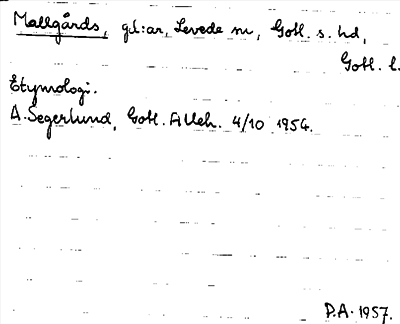 Mallgårds, gd:ar, Levede sn, Gotl. s. hd,
Gotl. l.
Etymologi.
A. Segerlund, Gotl. Alleh. 4/10 1954.
D.A. 1957.